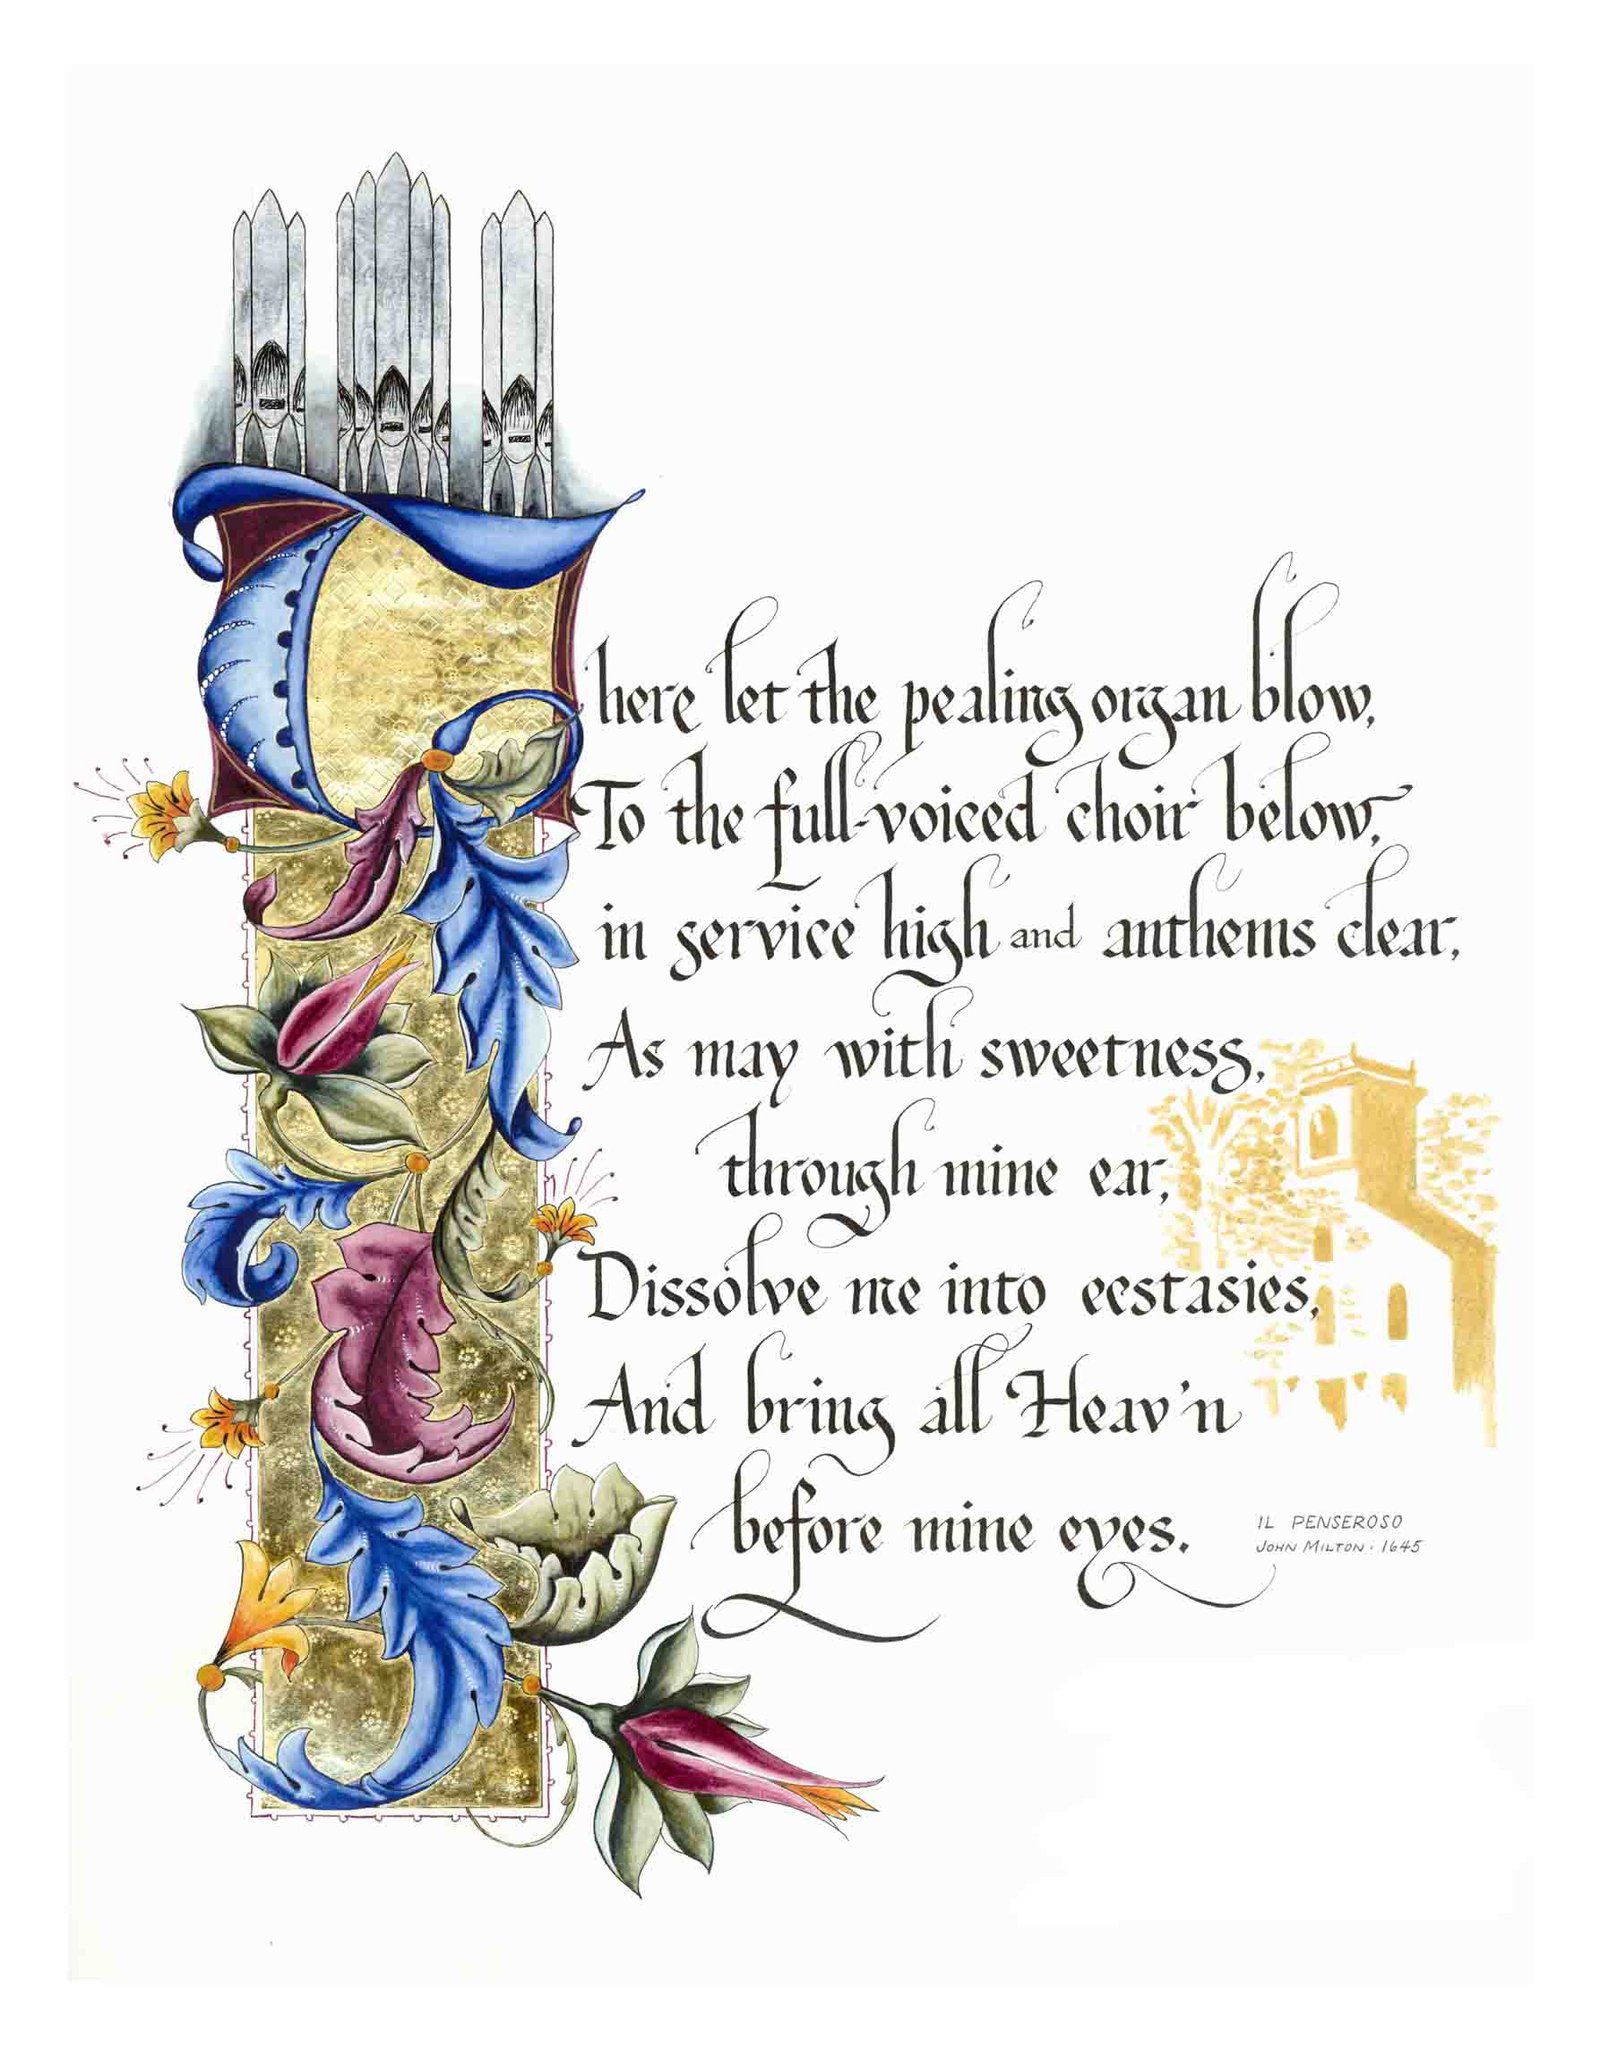 There let the pealing organ blow,
To the full-voiced choir below,
in service high and anthems clear,
As may with sweetness,
through mine ear,
Dissolve me into ecstasies,
And bring all Heav'n
before mine eyes.
IL PENSEROSO
JOHN MILTON : 1645